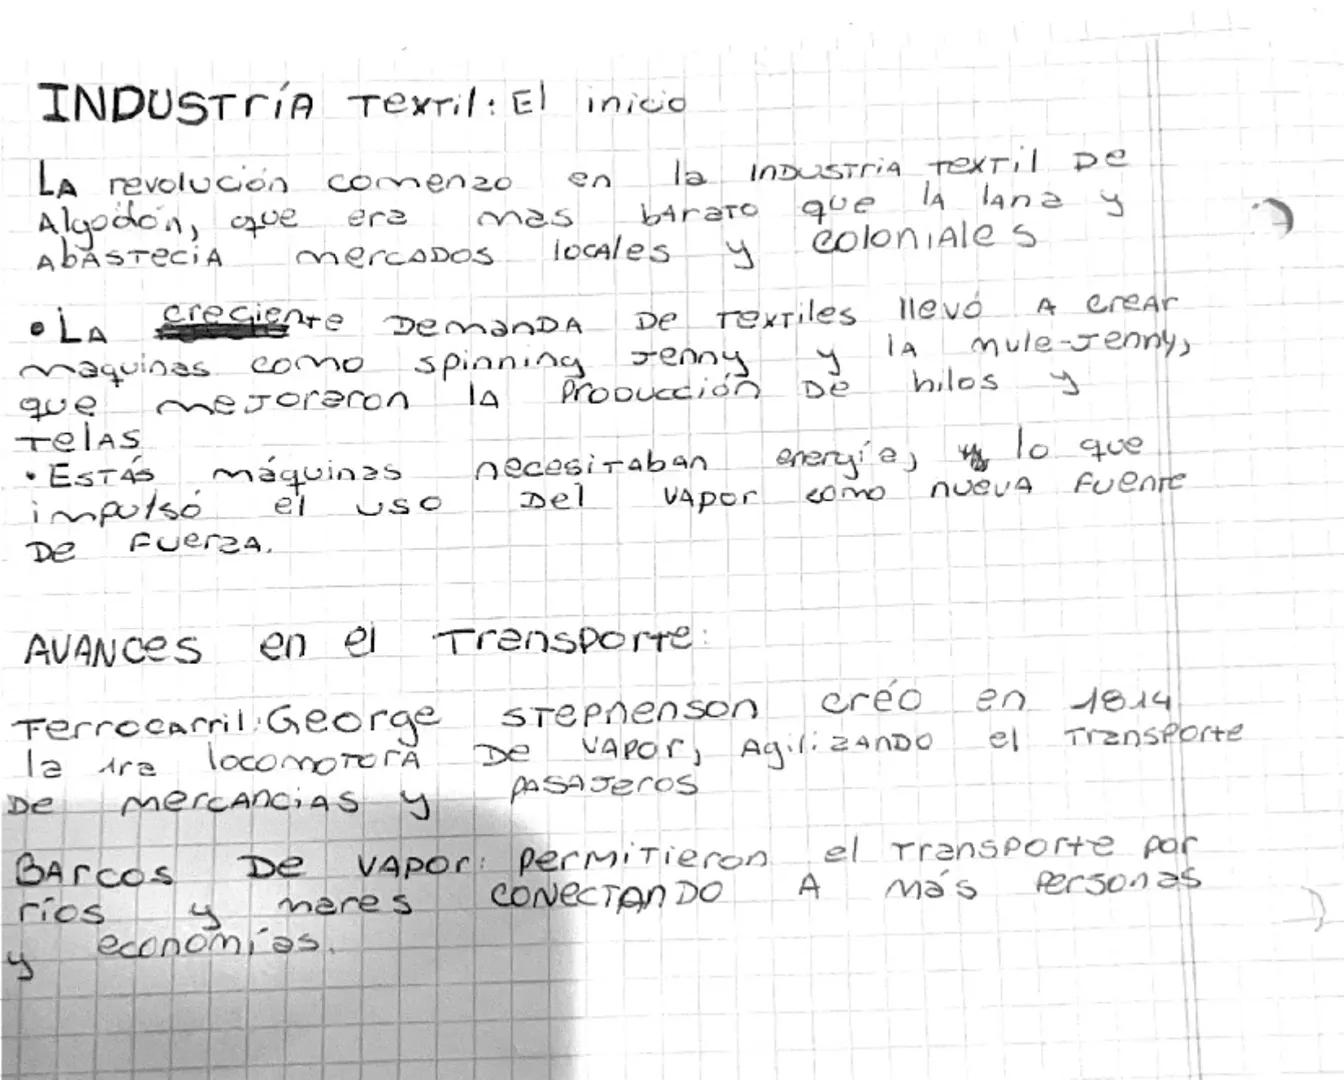 INDUSTría Textil: El inicio
LA revolución comenzo en la INDUSTria textil De
Algodón, que era mas barato que la lana y
AbAstecíA mercADos locAles y coloniAles
• LA creciente DemanDA De textiles llevó A creAr
maquinas como spinning Jenny y lA mule-Jenny,
que mejoraron lA Producción De hilos y
TelAs
• EsTás máquinas necesitaban energía, lo que
impulsó el uso Del vapor como nueva Fuente
De Fuerza.
AVANces en el Transporte:
Ferrocarril: George Stephenson créo en 1814
la 1ra locomoTorA De vapor, Agilizando el Transporte
De mercAnciAs y pasajeros
BArcos De vapor: permitieron el transporte por
ríos y mares CONECTANDO A más Personas
y economías.